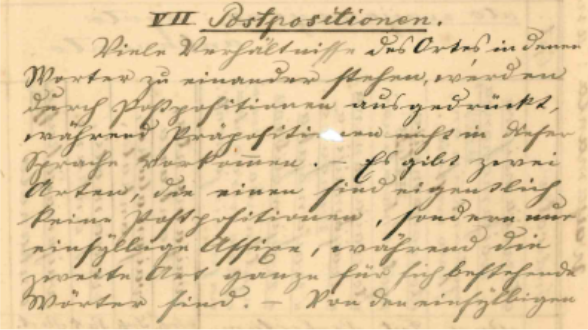 VII Postpositionen.
Viele Verhältnisse des Ortes in denen
Wörter zu einander stehen, werden
durch Postpositionen ausgedrückt,
während Präpositionen nicht in dieser
Sprache vorkom̄en. – Es gibt zwei
Arten, die einen sind eigentlich
keine Postpositionen, sondern nur
einsylbige Affixe, während die
zweite Art ganze für sich bestehende
Wörter sind. – Von den einsylbigen